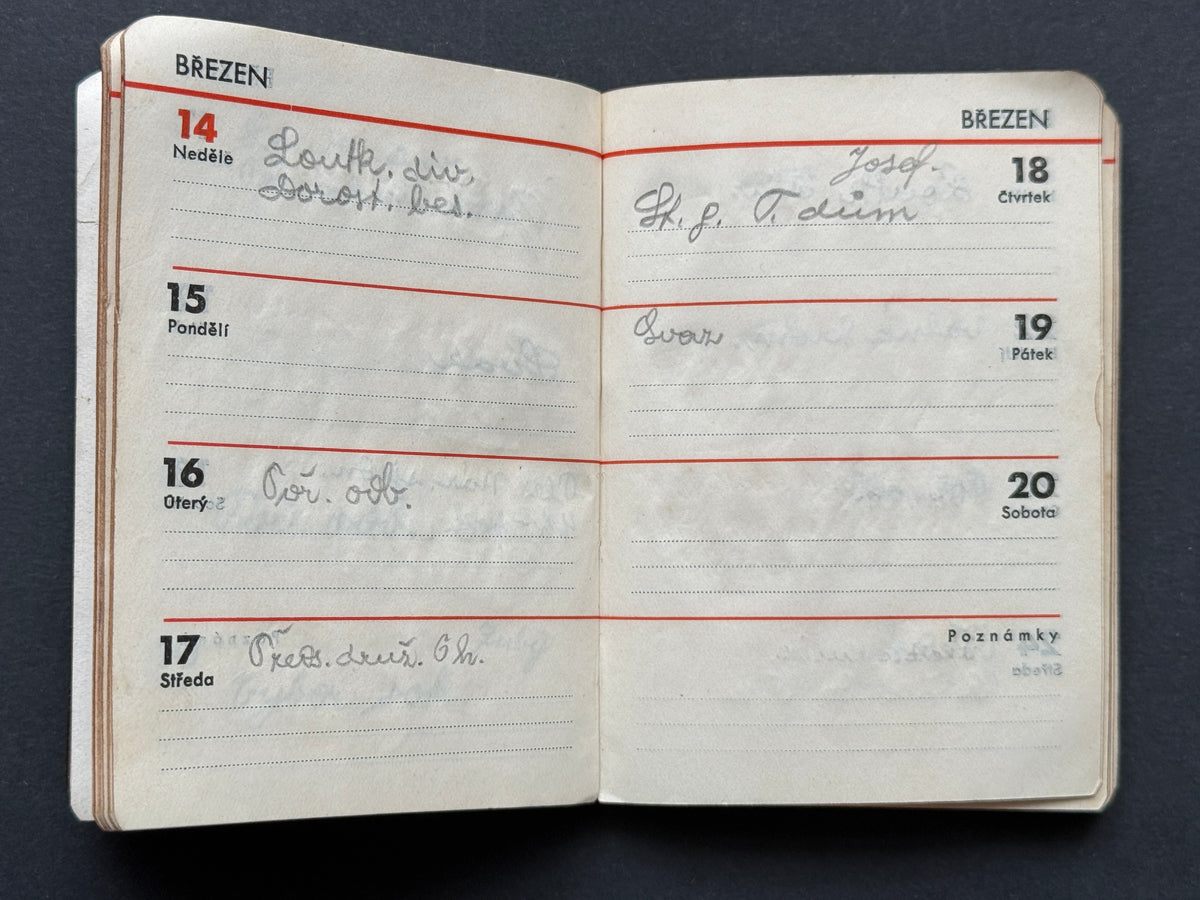 BŘEZEN
14
Neděle
Loutk. div.
Dorost. bes.
15
Pondělí
16
Úterý
Poř. odb.
17
Středa
Před. druž. 6 h.
BŘEZEN
18
Čtvrtek
Josef.
St. g. T. dům
19
Pátek
Svaz
20
Sobota
Poznámky